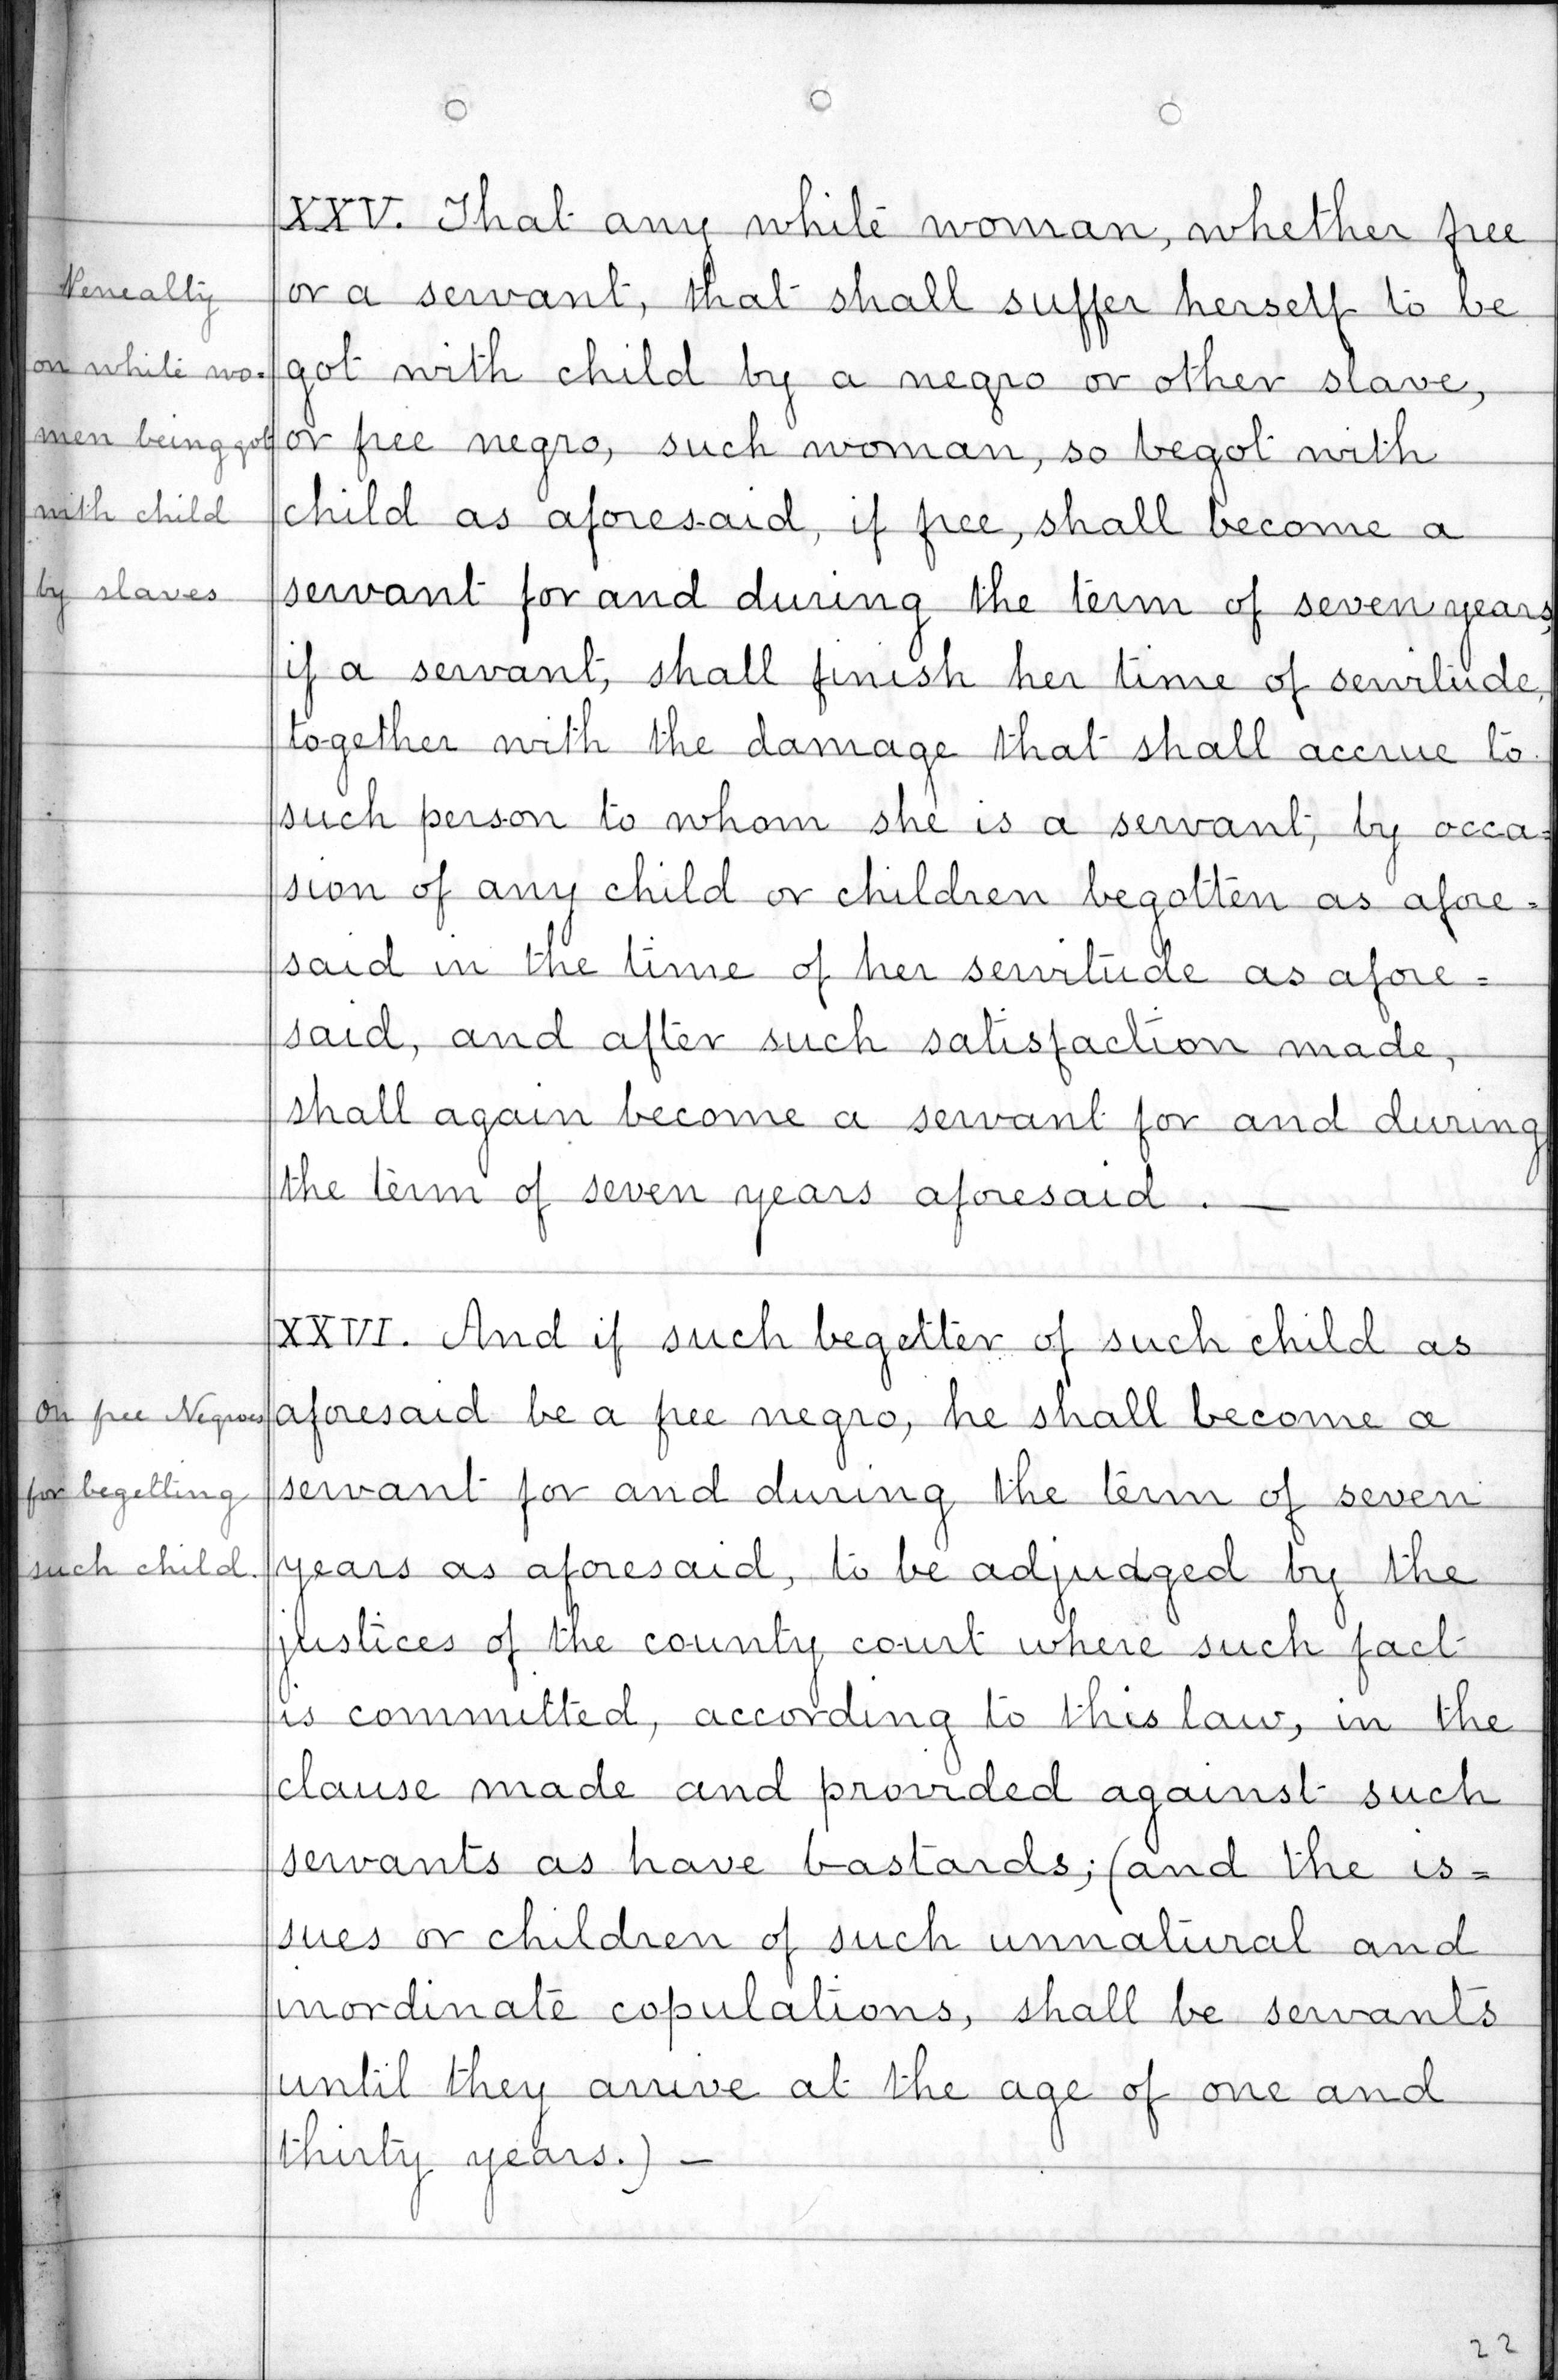 XXV. That any white woman, whether free
Penealty
or a servant, that shall suffer herself to be
on white wo=
got with child by a negro or other slave,
men being got
or free negro, such woman, so begot with
with child
child as aforesaid, if free, shall become a
by slaves
servant for and during the term of seven years,
if a servant, shall finish her time of servitude,
together with the damage that shall accrue to
such person to whom she is a servant, by occa=
sion of any child or children begotten as afore=
said in the time of her servitude as afore=
said, and after such satisfaction made,
shall again become a servant for and during
the term of seven years aforesaid. —
XXVI. And if such begetter of such child as
On free Negroes
aforesaid be a free negro, he shall become a
for begetting
servant for and during the term of seven
such child.
years as aforesaid, to be adjudged by the
justices of the county court where such fact
is committed, according to this law, in the
clause made and provided against such
servants as have bastards; (and the is=
sues or children of such unnatural and
inordinate copulations, shall be servants
until they arrive at the age of one and
thirty years.) —
22